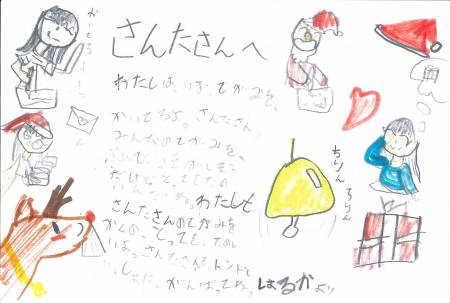 さんたさんへ
わたしは、いま、てがみを、
かいてるよ。さんたさん
みんなのてがみを、
よんで、いそがしそ
だけど、とっても
わたしも
さんたさんのてがみを
かくの、とっても、たの
いよ。さんたさんも、トントと
いっしょに、がんばってね。
はるかより
ちりん
ちりん